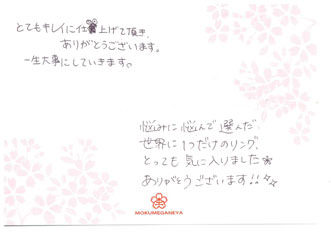 とてもキレイに仕上げて頂き、
ありがとうございます。
一生大事にしていきます。
悩みに悩んで選んだ
世界に1つだけのリング、
とっても気に入りました
ありがとうございます!!
MOKUMEGANEYA